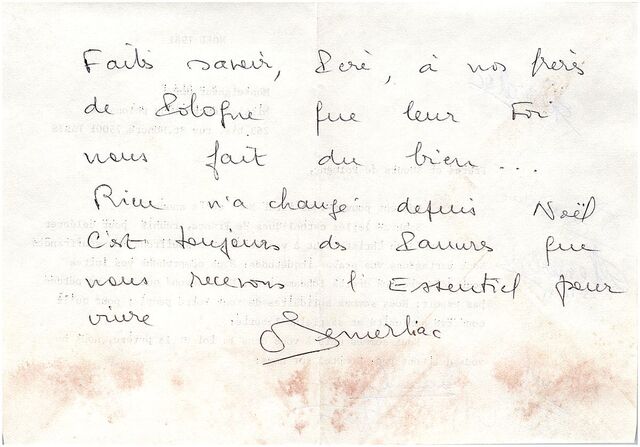 Faites savoir, Père, à nos frères
de Pologne que leur Foi
nous fait du bien...
Rien n'a changé depuis Noël
C'est toujours des Pauvres que
nous recevons l'Essentiel pour
vivre